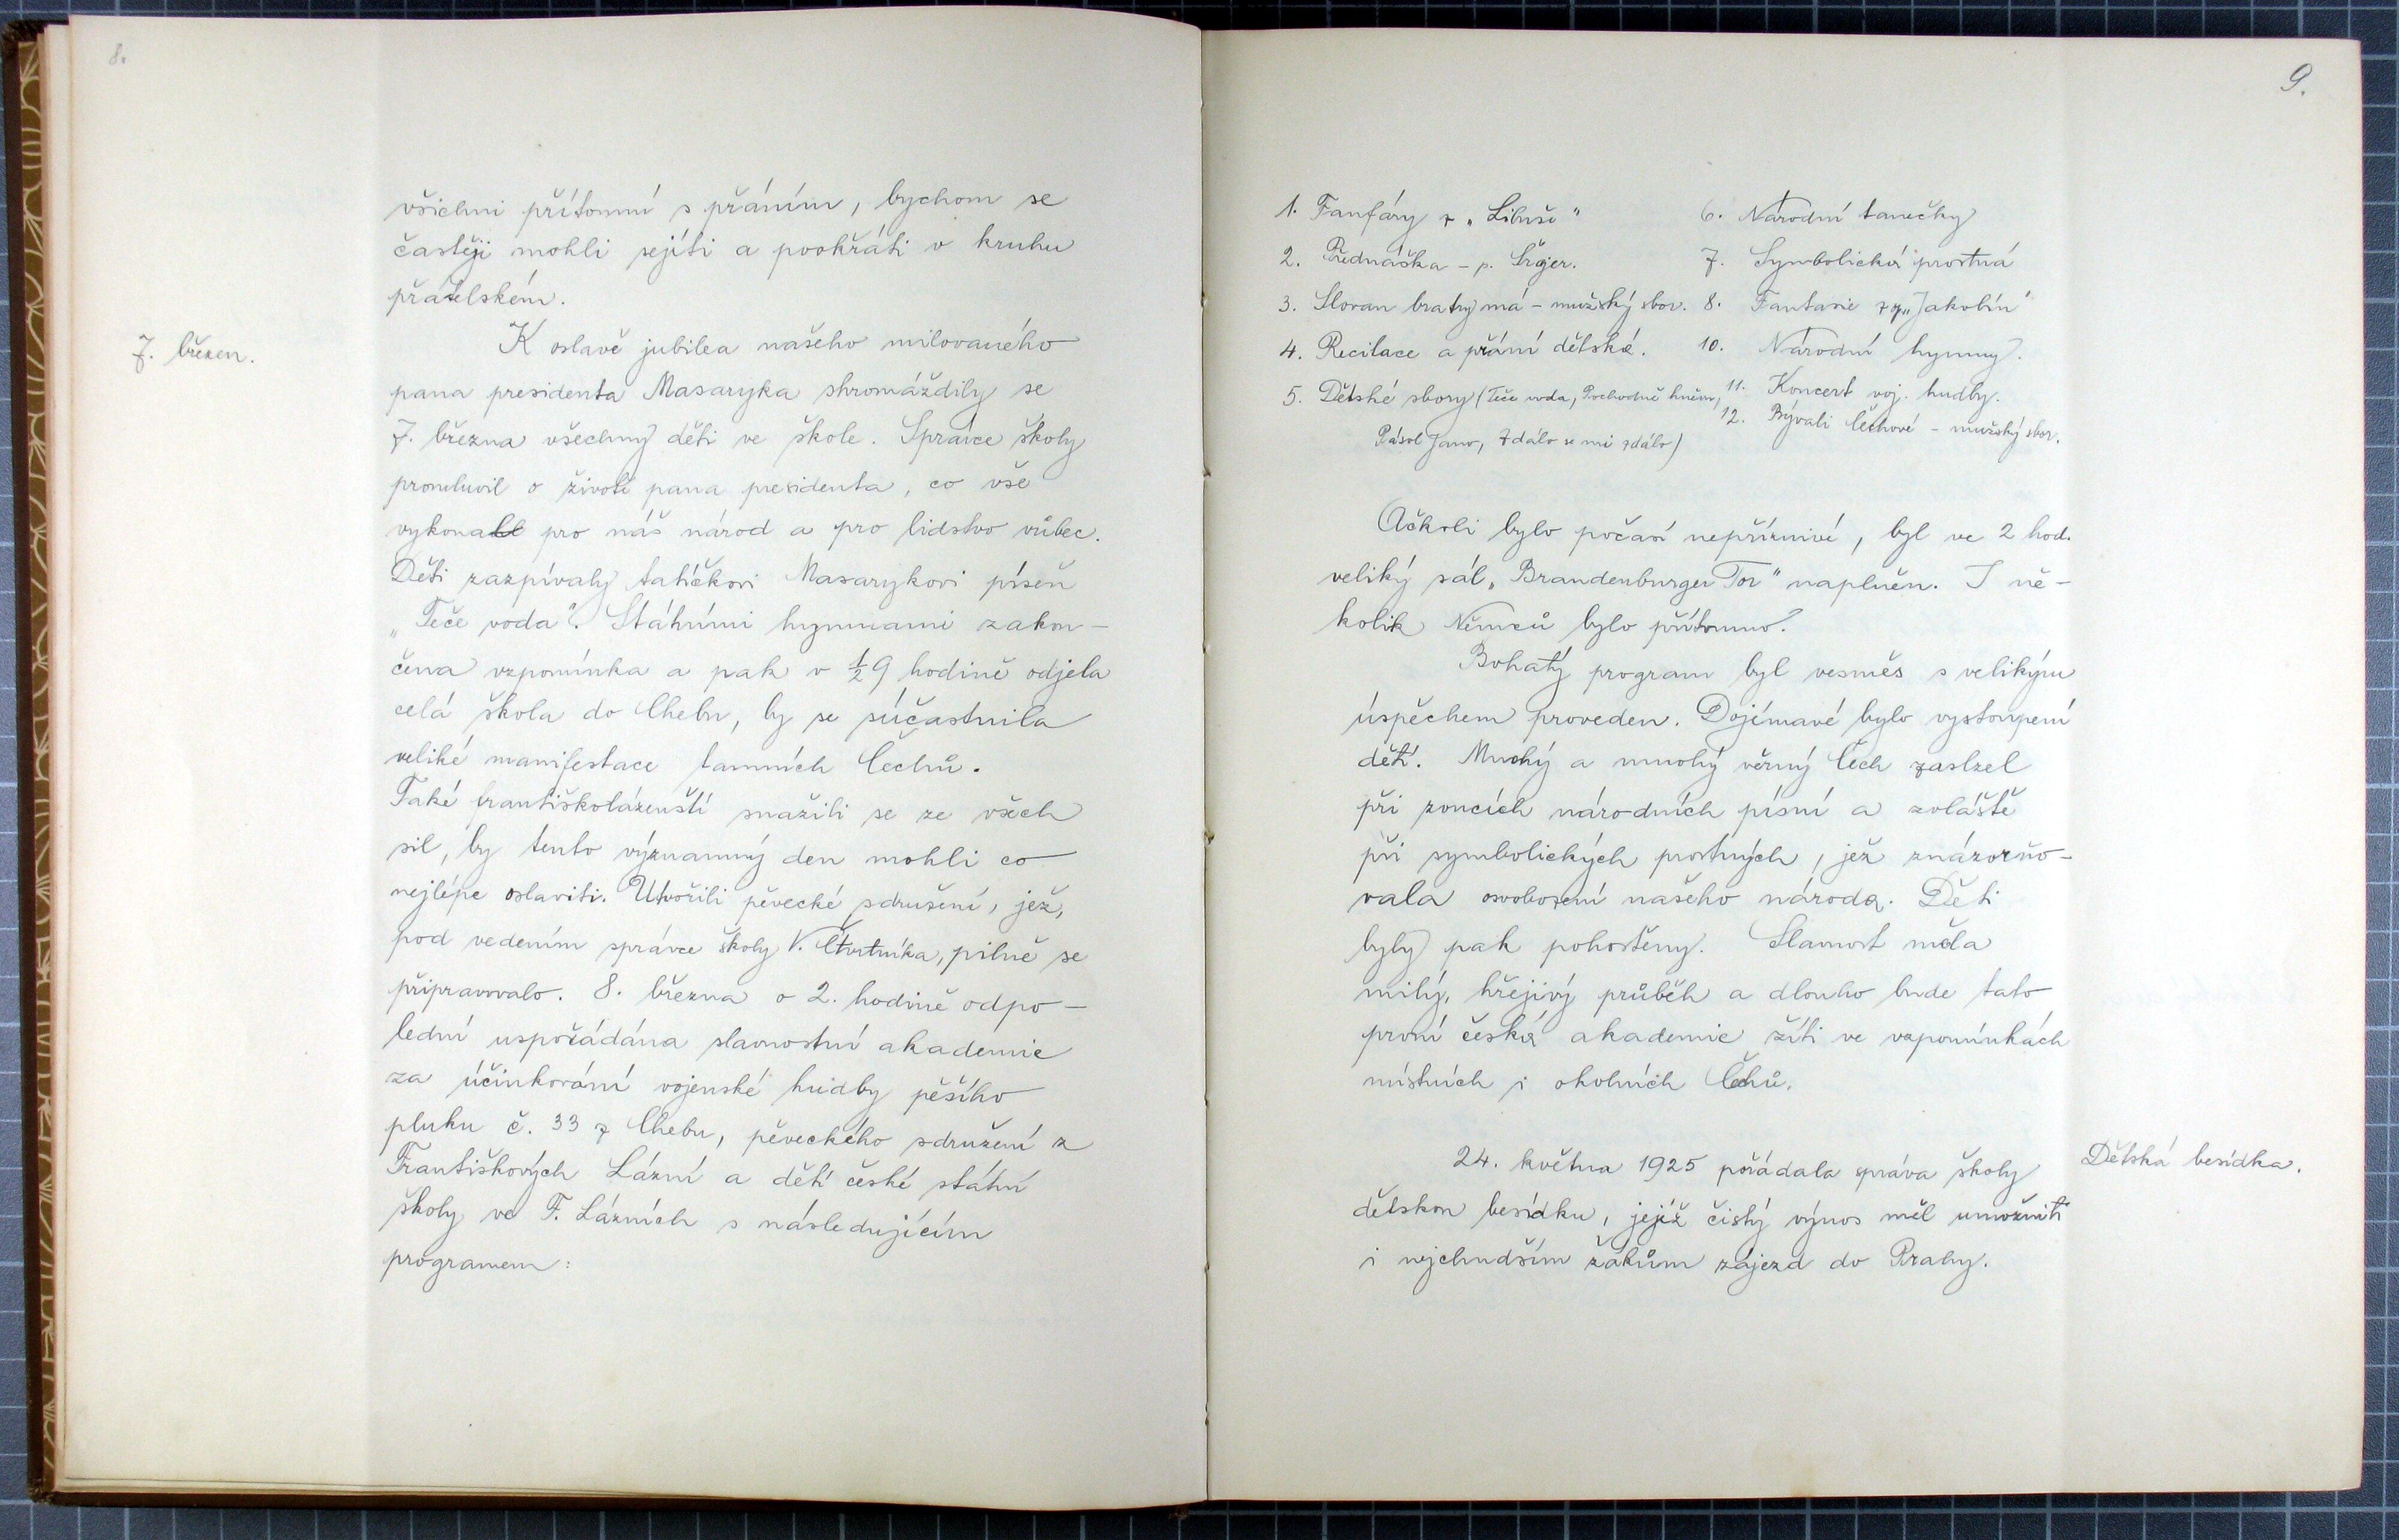 8.
všichni přítomní s přáním, bychom se
častěji mohli sejíti a pookřáti v kruhu
přátelském.
7. březen.
K oslavě jubilea našeho milovaného
pana presidenta Masaryka shromáždily se
7. března všechny děti ve škole. Správce školy
promluvil o životě pana presidenta, co vše
vykonal pro náš národ a pro lidstvo vůbec.
Děti zazpívaly tatíčkovi Masarykovi píseň
„Teče voda". Státními hymnami zakon-
čena vzpomínka a pak v ½9 hodině odjela
celá škola do Chebu, by se súčastnila
veliké manifestace tamních Čechů.
Také františkolázenští snažili se ze všech
sil, by tento významný den mohli co
nejlépe oslaviti. Utvořili pěvecké sdružení, jež,
pod vedením správce školy V. Čtvrtníka, pilně se
připravovalo. 8. března o 2. hodině odpo-
lední uspořádána slavnostní akademie
za účinkování vojenské hudby pěšího
pluku č. 33 z Chebu, pěveckého sdružení z
Františkových Lázní a dětí české státní
školy ve F. Lázních s následujícím
programem:
9.
1. Fanfáry z „Libuše"
2. Přednáška - p. Šrájer.
3. Slovan bratry má - mužský sbor.
4. Recitace a přání dětská.
5. Dětské sbory (Teče voda, Pochodně hučin,
Pásol Jano, Zdálo se mi zdálo)
6. Národní tanečky
7. Symbolická prostná
8. Fantasie z „Jakobín"
10. Národní hymny.
11. Koncert voj. hudby.
12. Bývali Čechové - mužský sbor.
Ačkoli bylo počasí nepříznivé, byl ve 2 hod.
veliký sál „Brandenburger Tor" naplněn. I ně-
kolik Němců bylo přítomno.
Bohatý program byl vesměs s velikým
úspěchem proveden. Dojímavé bylo vystoupení
dětí. Mnohý a mnohý věrný Čech zaslzel
při zvucích národních písní a zvláště
při symbolických prostných, jež znázorňo-
vala osvobození našeho národa. Děti
byly pak pohoštěny. Slavnost měla
milý, hřejivý průběh a dlouho bude tato
první česká akademie žíti ve vzpomínkách
místních i okolních Čechů.
24. května 1925 pořádala správa školy
Dětská besídka.
dětskou besídku, jejíž čistý výnos měl umožniti
i nejchudším žákům zájezd do Prahy.